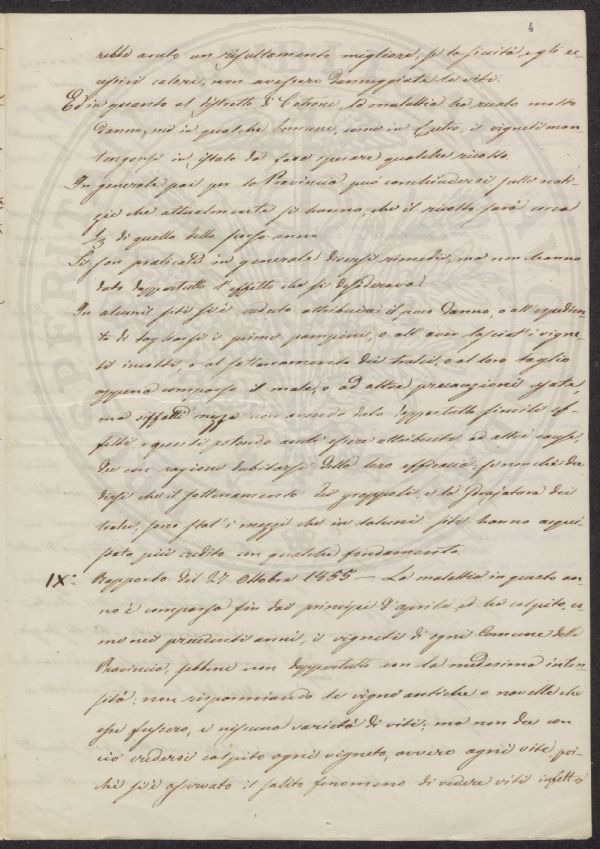 4
rebbe avuto un risultamento migliore, se la siccità e gli ec-
cessivi calori, non avessero danneggiate le viti.
Ed in quanto al distretto di Cotrone, la malattia ha recato molto
danno, ma in qualche comune, come in Cutro, i vigneti man-
tengonsi in stato da fare sperare qualche ricolto.
In generale poi per la Provincia può conchiudersi sulle noti-
zie che attualmente si hanno, che il ricolto sarà circa
1/3 di quello dello scorso anno.
Si son praticati in generale diversi rimedii, ma non hanno
dato dappertutto l'effetto che si desiderava.
In alcuni siti si è veduto attribuire il poco danno, o all'espedien-
te di tagliarsi i primi pampini, o all'aver lasciat'i vigne-
ti incolti, o al sotterramento dei tralci, o al loro taglio
appena comparso il male, o ad altre precauzioni usate,
ma siffatti mezzi non avendo dato dappertutto simili ef-
fetti, e questi potendo anche essere attribuiti ad altre cause,
dee con ragione dubitarsi della loro efficacia, se non che dee
dirsi che il sotterramento dei grappoli, e la
tralci, sono stat'i mezzi che in taluni siti hanno acqui-
stato più credito con qualche fondamento.
IX° Rapporto del 27 Ottobre 1855 — La malattia in questo an-
no è comparsa fin dai principii d'aprile, ed ha colpito, co-
me nei precedenti anni, i vigneti di ogni Comune della
Provincia, sebbene non dappertutto con la medesima inten-
sità; non risparmiando le vigne antiche o novelle che
esse fussero, e nissuna varietà di viti; ma non dee con
ciò credersi colpito ogni vigneto, ovvero ogni vite, poi-
chè si è osservato il solito fenomeno di vedere viti infette